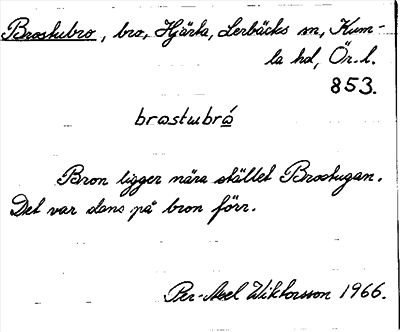 Brostubro, bro, Hjärta, Lerbäcks sn, Kum-
la hd, Ör. l.
853.
brostɯbrå̱
Bron ligger nära stället Brostugan.
Det var dans på bron förr.
Per-Axel Wiktorsson 1966.